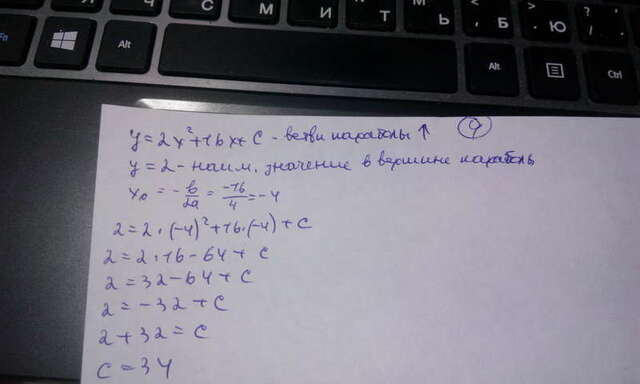 Fn Alt Ч С М И Т Ь , Б > . Ю ? / , Alt Ctrl
y = 2x² + 16x + C - ветви параболы ↑ 9
y = 2 - наим. значение в вершине параболы
x₀ = -b/2a = -16/4 = -4
2 = 2 · (-4)² + 16 · (-4) + C
2 = 2 · 16 - 64 + C
2 = 32 - 64 + C
2 = -32 + C
2 + 32 = C
C = 34